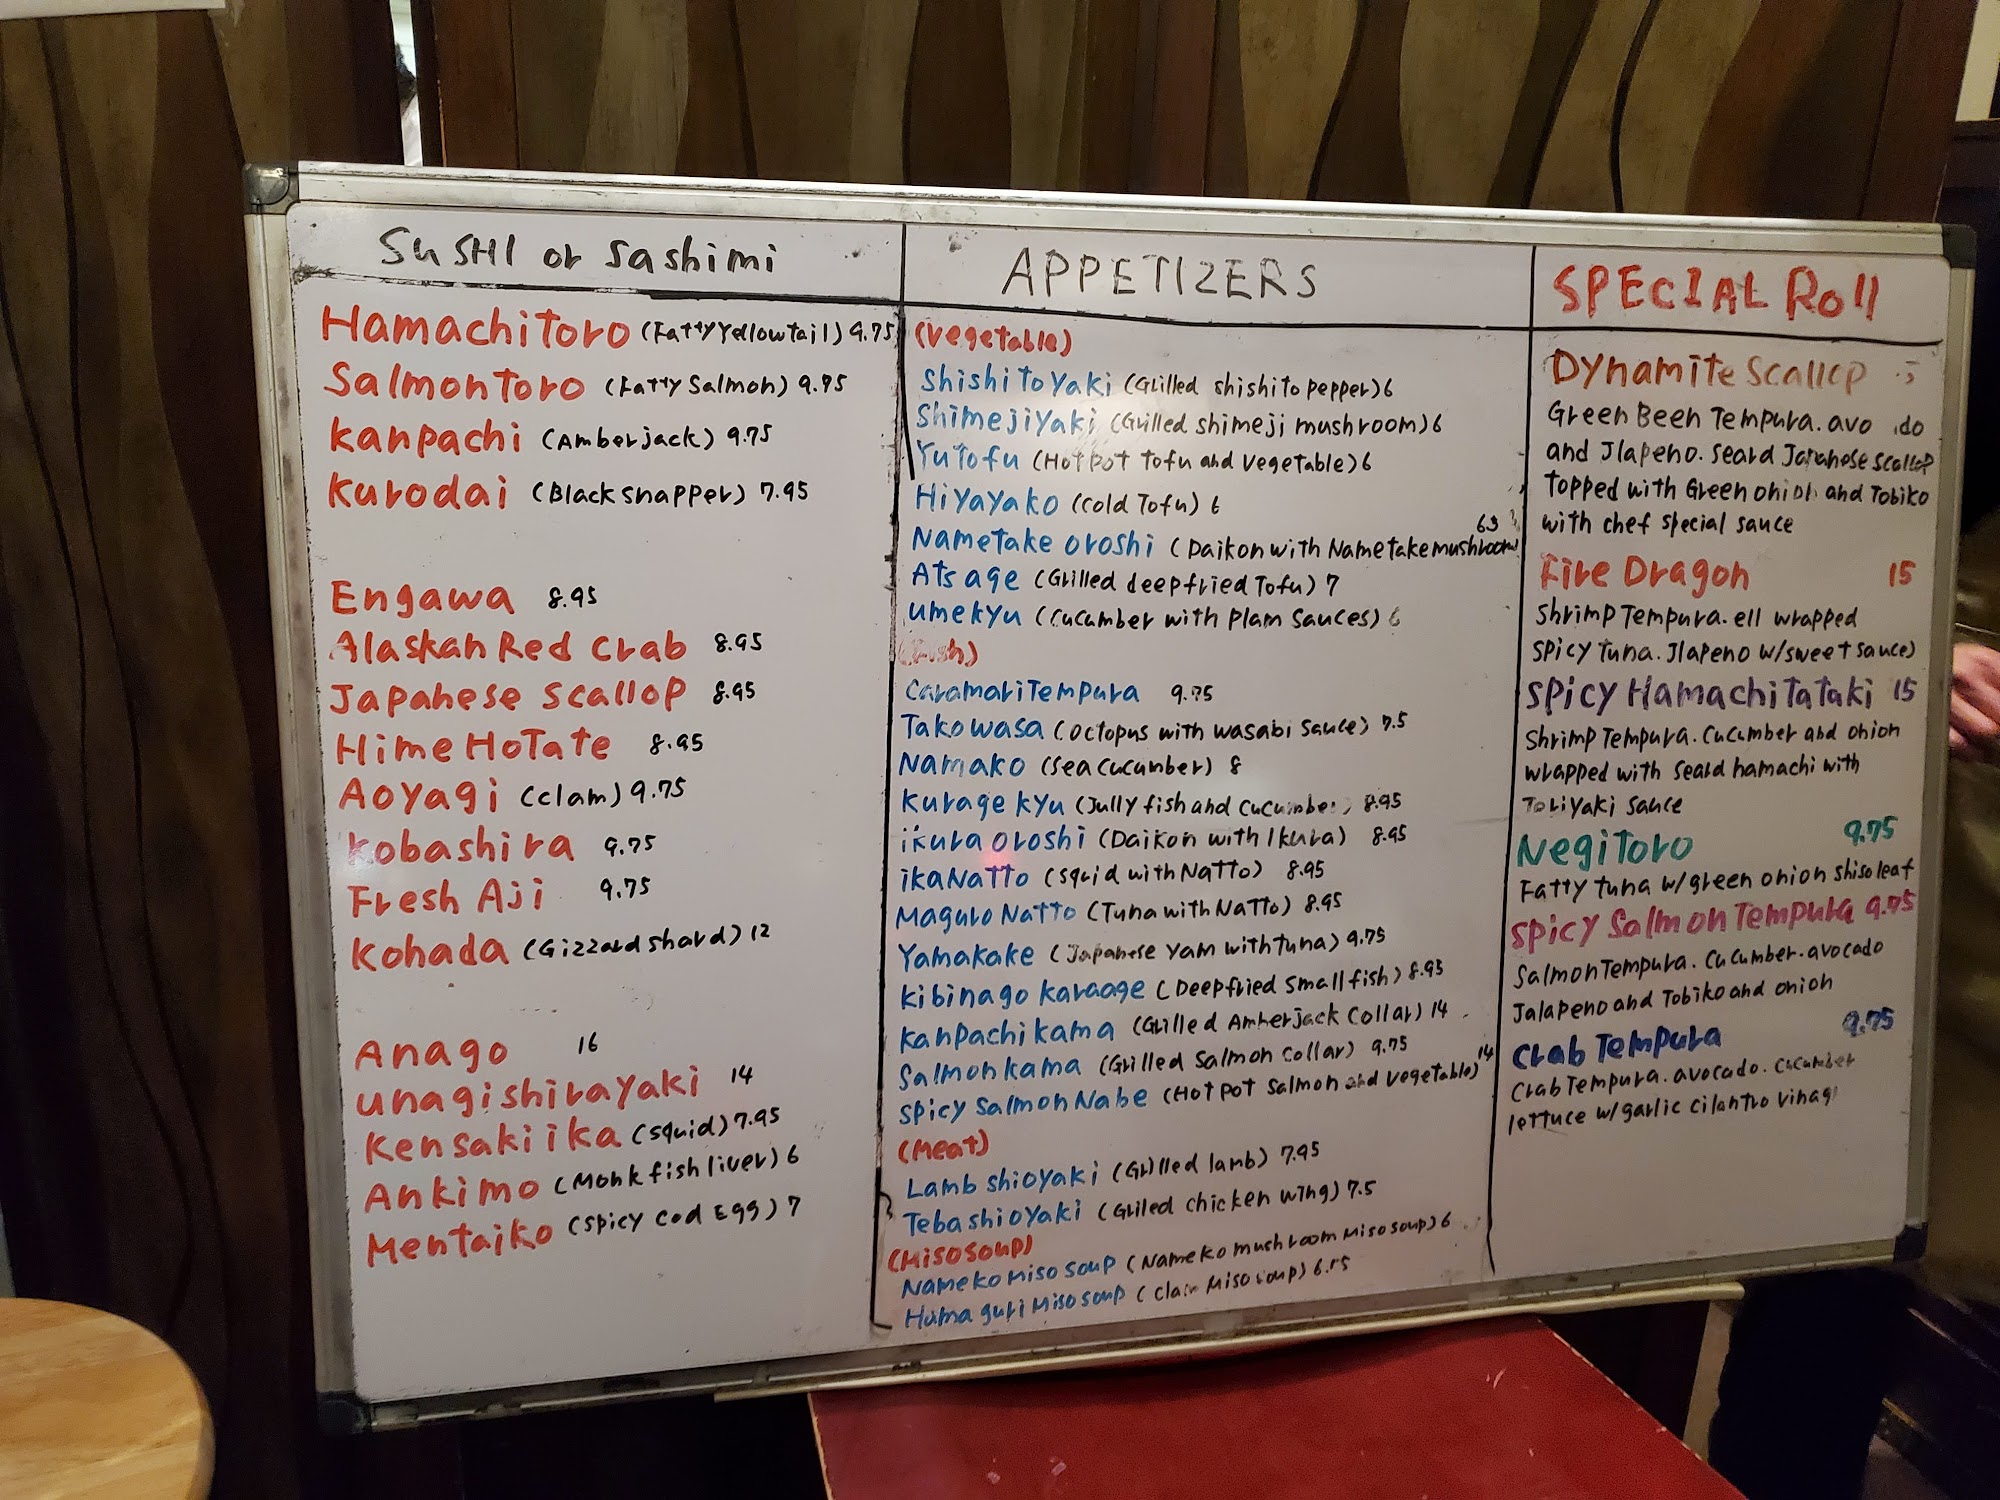 SUSHI or Sashimi
HamachiToro (Fatty Yellowtail) 9.75
SalmonToro (Fatty Salmon) 9.75
Kanpachi (Amberjack) 9.75
Kurodai (Black snapper) 7.95
Engawa 8.95
Alaskan Red Crab 8.95
Japanese Scallop 8.95
Hime HoTaTe 8.95
Aoyagi (clam) 9.75
Kobashira 9.75
Fresh Aji 9.75
Kohada (Gizzard shard) 12
Anago 16
unagishirayaki 14
Kensaki ika (squid) 7.95
Ankimo (Monk fish liver) 6
Mentaiko (Spicy Cod Egg) 7
APPETIZERS
(Vegetable)
ShishiToYaki (Grilled shishito pepper) 6
Shimejiyaki (Grilled shimeji mushroom) 6
YuTofu (HotpoT Tofu and Vegetable) 6
Hiyayako (Cold Tofu) 6
NameTake oroshi (Daikon with Nametake mushroom)
Atsage (Grilled deepfried Tofu) 7
umekyu (Cucumber with Plam Sauces) 6
(Fish)
CaramariTempura 9.75
Takowasa (Octopus with wasabi Sauce) 7.5
Namako (Sea Cucumber) 8
Kurage kyu (Jully fish and Cucumber) 8.95
ikura oroshi (Daikon with Ikura) 8.95
ikaNaTTo (squid with NaTTo) 8.95
Maguro NaTTo (Tuna with NaTTo) 8.95
Yamakake (Japanese Yam with tuna) 9.75
Kibinago karaage (Deepfried Small fish) 8.95
Kanpachi kama (Grilled Amberjack Collar) 14
Salmon kama (Grilled Salmon Collar) 9.75
Spicy Salmon Nabe (HoT PoT Salmon and Vegetable) 14
(Meat)
Lamb shioyaki (Grilled lamb) 7.95
Tebashioyaki (Grilled chicken wing) 7.5
(Miso soup)
Nameko Miso soup (Nameko mushroom Miso soup) 6
Hamaguri Miso soup (Clam Miso soup)
SPECIAL Roll
Dynamite Scallop
Green Been Tempura. avo do
and Jlapeno. Seard Japanese Scallop
Topped with Green onion and Tobiko
with chef special sauce
Fire Dragon 15
Shrimp Tempura. ell wrapped
Spicy tuna. Jlapeno w/sweet sauce)
Spicy HamachiTaTaki 15
Shrimp Tempura. Cucumber and onion
wrapped with Seard hamachi with
Toriyaki Sauce
NegiToro 9.75
Fatty tuna w/green onion shiso leaf
Spicy SalmonTempura 9.75
SalmonTempura. Cucumber. avocado
Jalapeno and Tobiko and onion
Crab Tempura 9.75
Crab Tempura. avocado. cucumber
lettuce w/garlic cilantro vinag